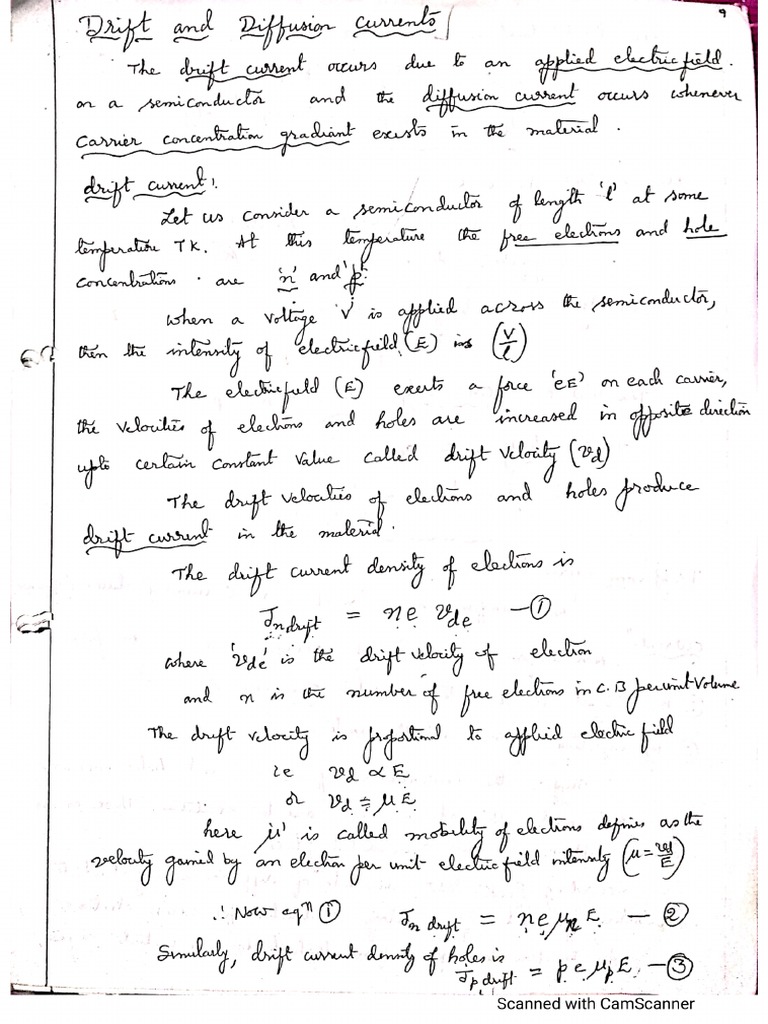 9
Drift and Diffusion Currents
The drift current occurs due to an applied electric field.
on a semiconductor and the diffusion current occurs whenever
carrier concentration gradient exists in the material.
drift current:
Let us consider a semiconductor of length 'l' at some
temperature TK. At this temperature the free electrons and hole
concentrations are 'n' and 'p'.
When a voltage 'V' is applied across the semiconductor,
then the intensity of electric field (E) is (V/l)
The electric field (E) exerts a force 'eE' on each carrier,
the velocities of electrons and holes are increased in opposite direction
upto certain constant value called drift velocity (vd)
The drift velocities of electrons and holes produce
drift current in the material.
The drift current density of electrons is
Jn drift = ne vde — ①
where 'vde' is the drift velocity of electron
and n is the number of free electrons in C.B per unit volume
The drift velocity is proportional to applied electric field
ie vd ∝ E
or vd = μE
here 'μ' is called mobility of electrons defines as the
velocity gained by an electron per unit electric field intensity (μ = vd/E)
∴ Now eqn ① Jn drift = neμnE — ②
Similarly, drift current density of holes is
Jp drift = peμpE — ③
Scanned with CamScanner